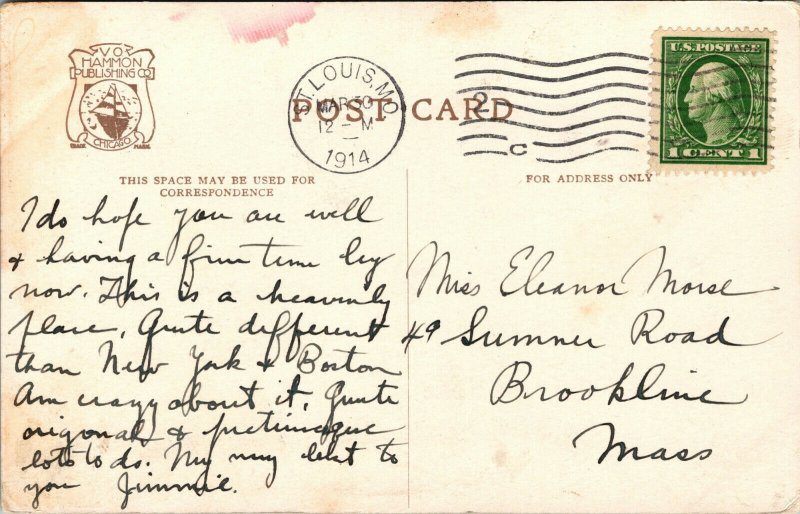 V.O.
HAMMON
PUBLISHING CO
CHICAGO
TRADE MARK
ST. LOUIS, MO
MAR 30
12 - M
1914
2
C
U.S. POSTAGE
1 CENT 1
POST CARD
THIS SPACE MAY BE USED FOR
CORRESPONDENCE
FOR ADDRESS ONLY
I do hope you are well
+ having a fine time by
now. This is a heavenly
place, Quite different
than New York + Boston
Am crazy about it, Quite
origonal + pretinesque
lots to do. My very best to
you Jimmie.
Miss Eleanor Morse
49 Sumner Road
Brookline
Mass